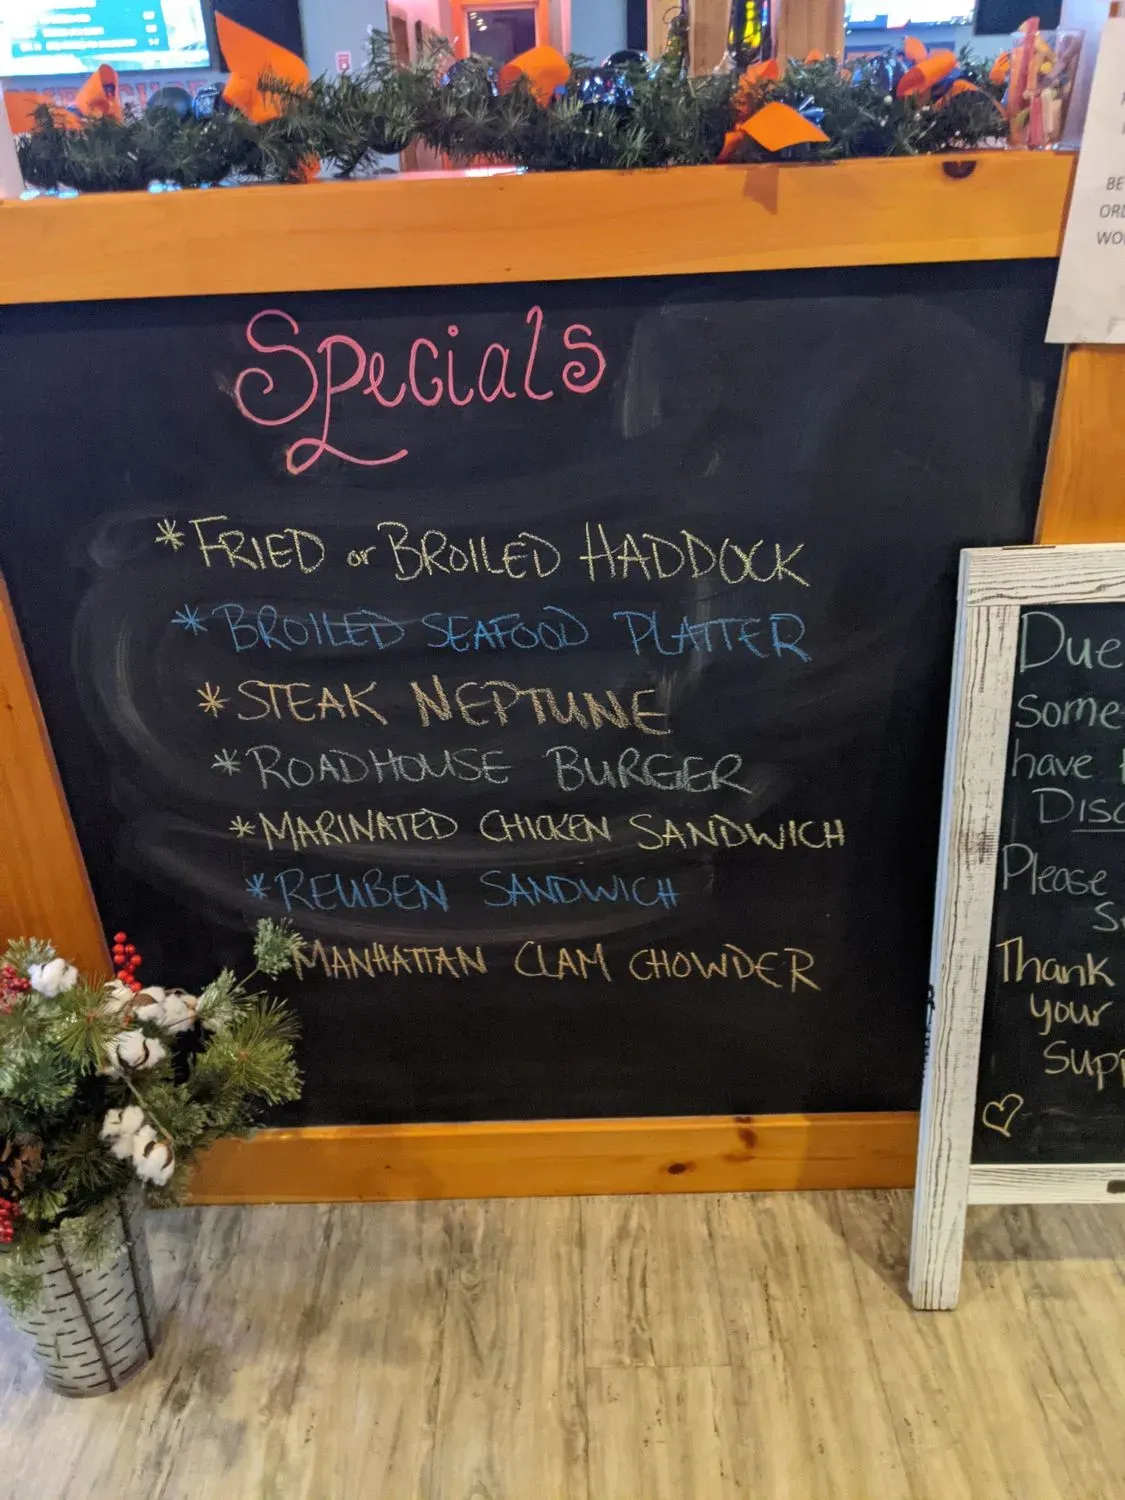 Specials
* FRIED or BROILED HADDOCK
* BROILED SEAFOOD PLATTER
* STEAK NEPTUNE
* ROADHOUSE BURGER
* MARINATED CHICKEN SANDWICH
* REUBEN SANDWICH
MANHATTAN CLAM CHOWDER
BE
ORD
WO
Due
some
have
Disc
Please
S
Thank
your
Supp